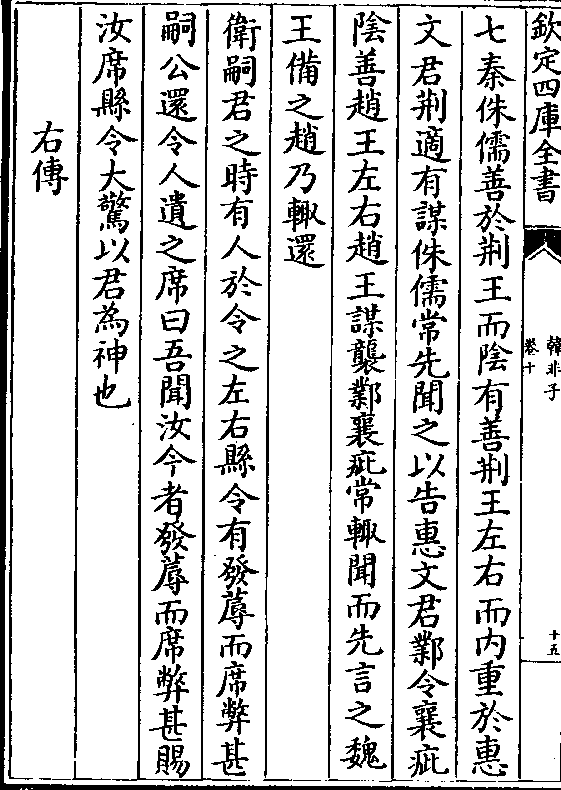 欽定四庫全書
韓非子
卷十
十五
七秦侏儒善於荆王而陰有善荆王左右而内重於惠
文君荆適有謀侏儒常先聞之以告惠文君鄴令襄疵
陰善趙王左右趙王謀襲鄴襄疵常輙聞而先言之魏
王備之趙乃輙還
衛嗣君之時有人於令之左右縣令有發蓐而席弊甚
嗣公還令人遺之席曰吾聞汝今者發蓐而席弊甚賜
汝席縣令大驚以君為神也
右傳